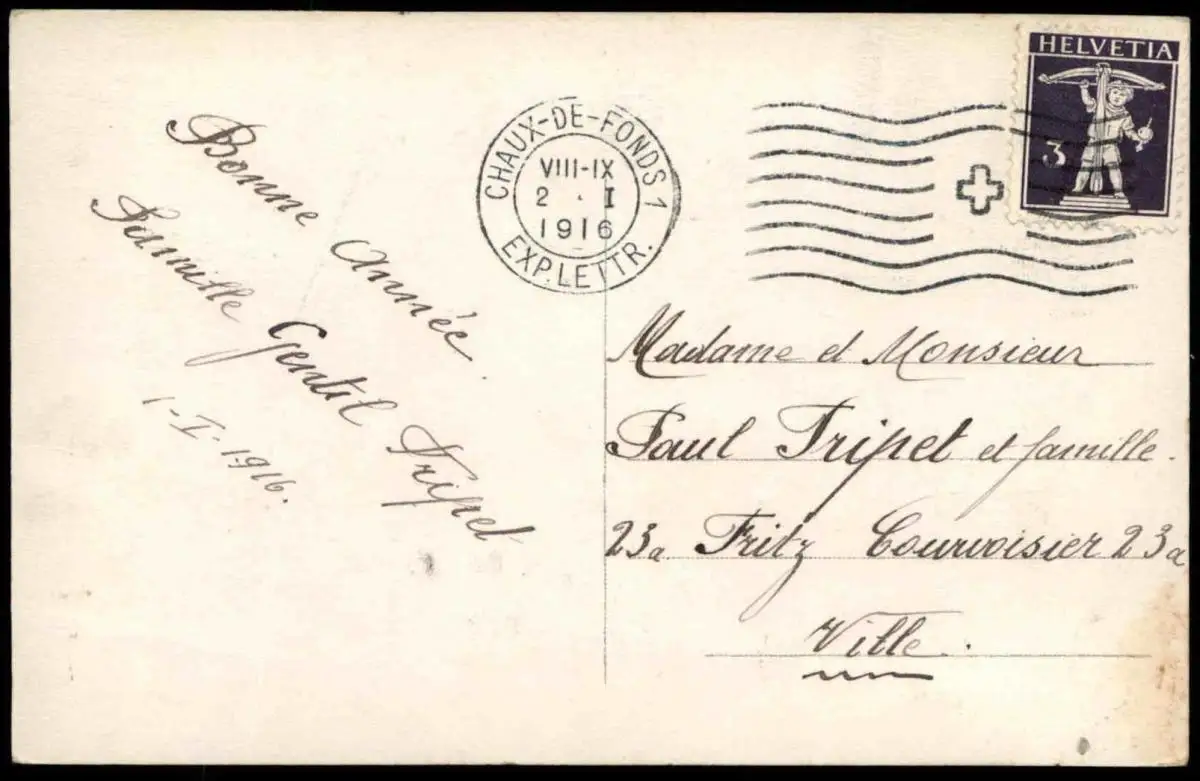 Bonne année.
Famille Gentil Tripet
1-I.1916.
CHAUX-DE-FONDS 1
VIII-IX
2 . I
1916
EXP. LETTR.
HELVETIA
3
Madame et Monsieur
Paul Tripet et famille.
23a Fritz Courvoisier 23a
Ville.